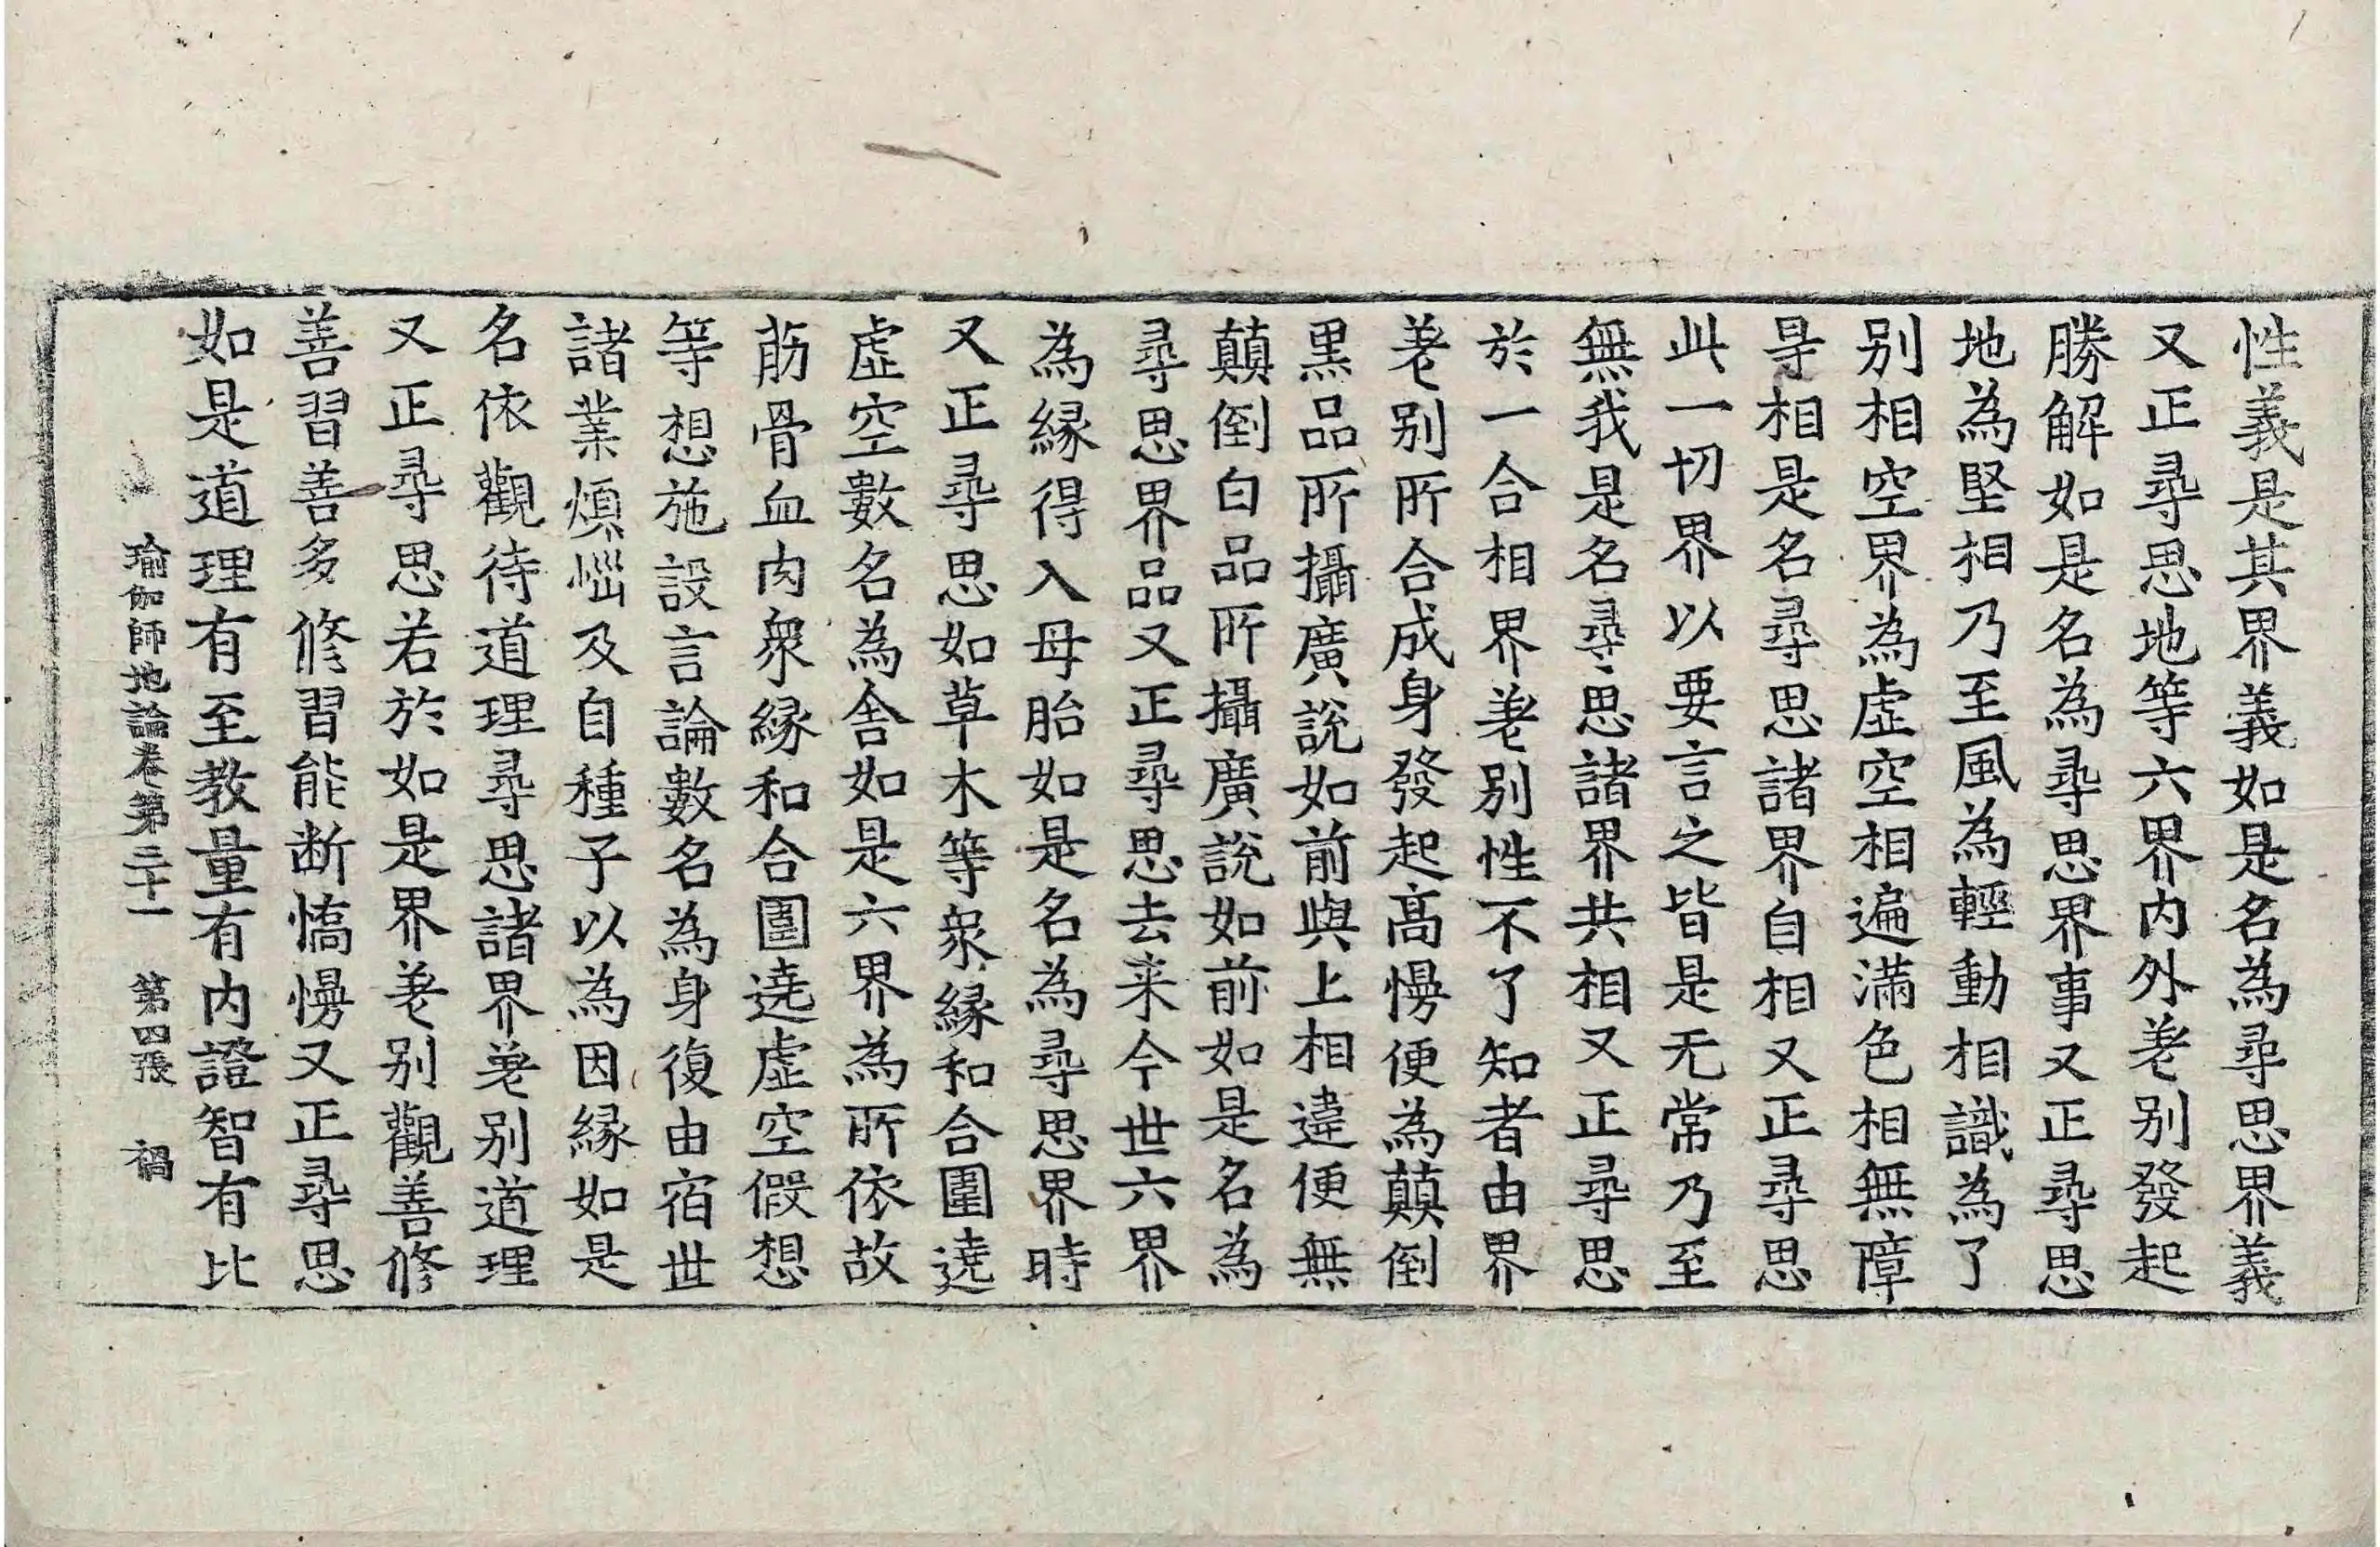 性義是其界義如是名為尋思界義
又正尋思地等六界内外差别發起
勝解如是名為尋思界事又正尋思
地為堅相乃至風為輕動相識為了
别相空界為虚空相遍滿色相無障
㝵相是名尋思諸界自相又正尋思
此一切界以要言之皆是无常乃至
無我是名尋思諸界共相又正尋思
於一合相界差别性不了知者由界
差别所合成身發起高慢便為顛倒
黒品所攝廣說如前與上相違便無
顛倒白品所攝廣說如前如是名為
尋思界品又正尋思去来今世六界
為縁得入母胎如是名為尋思界時
又正尋思如草木等衆縁和合圍遶
虚空數名為舍如是六界為所依故
筋骨血肉衆縁和合圍遶虚空假想
等想施設言論數名為身復由宿世
諸業煩惱及自種子以為因縁如是
名依觀待道理尋思諸界差别道理
又正尋思若於如是界差别觀善修
善習善多修習能断憍慢又正尋思
如是道理有至教量有内證智有比
瑜伽師地論卷第三十一 第四張